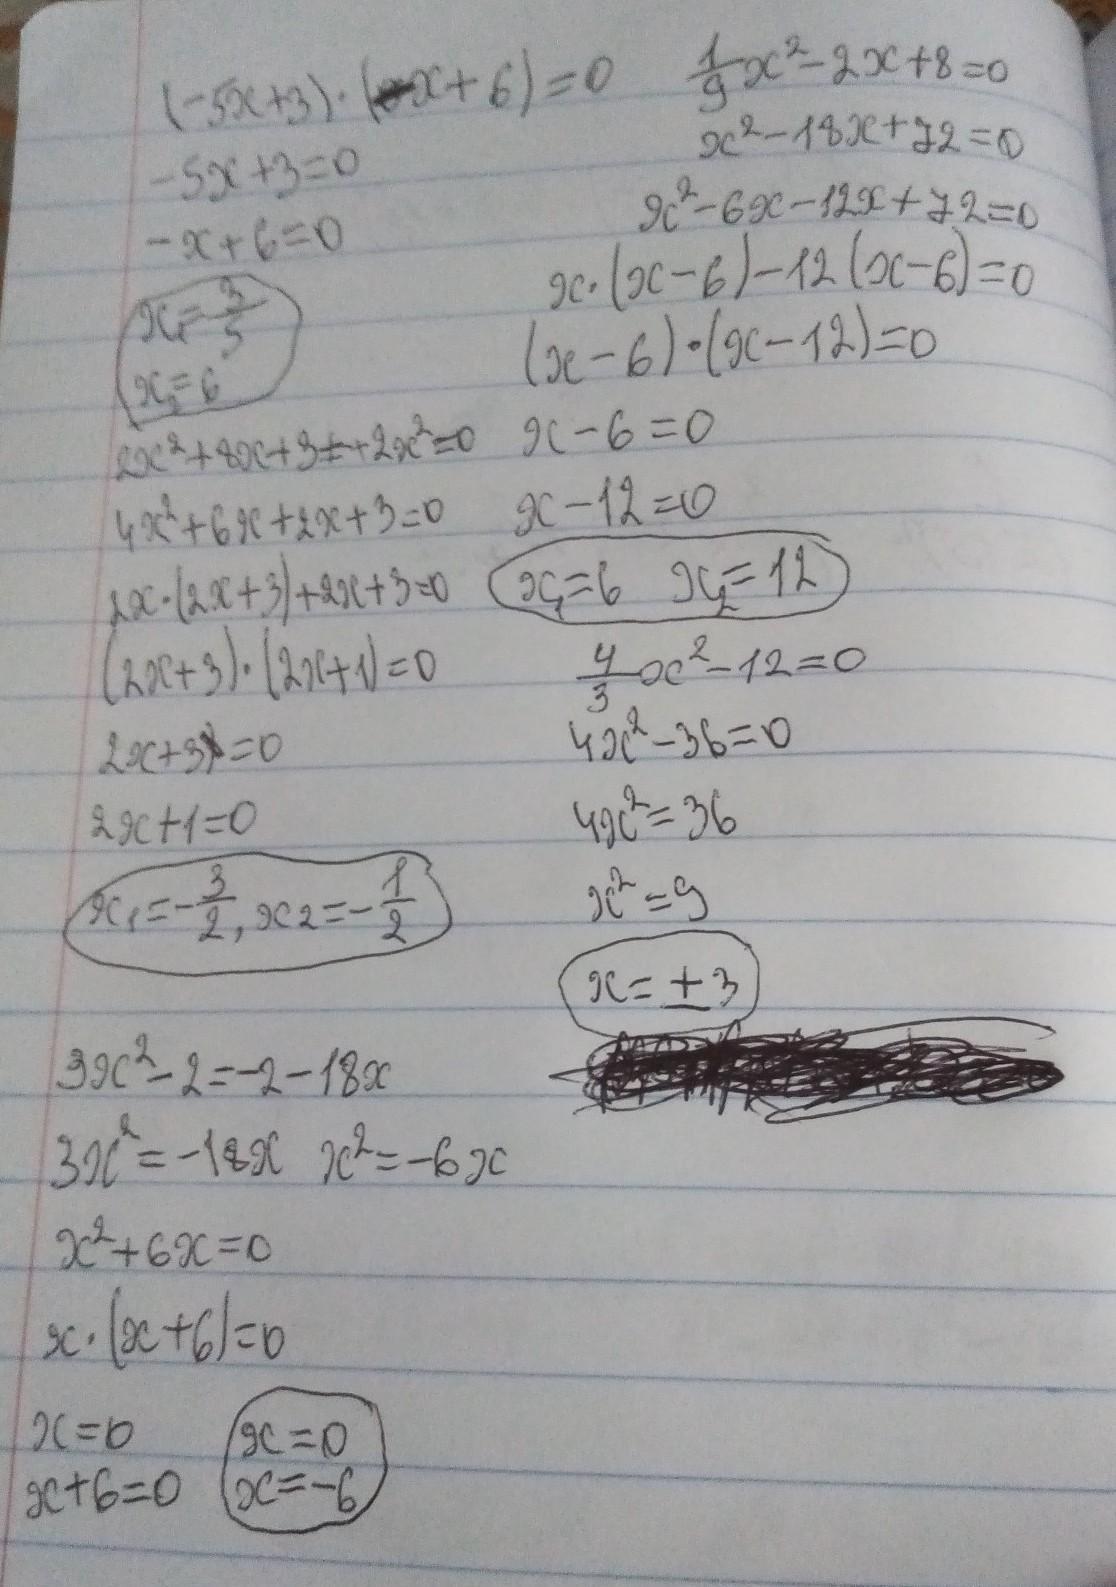 (-5x+3)·(-x+6)=0
-5x+3=0
-x+6=0
x₁=3/5
x₂=6
2x²+8x+3+2x²=0
4x²+6x+2x+3=0
2x·(2x+3)+2x+3=0
(2x+3)·(2x+1)=0
2x+3=0
2x+1=0
x₁=-3/2, x2=-1/2
3x²-2=-2-18x
3x²=-18x x²=-6x
x²+6x=0
x·(x+6)=0
x=0
x+6=0
x=0
x=-6
1/9x²-2x+8=0
x²-18x+72=0
x²-6x-12x+72=0
x·(x-6)-12(x-6)=0
(x-6)·(x-12)=0
x-6=0
x-12=0
x₁=6 x₂=12
4/3x²-12=0
4x²-36=0
4x²=36
x²=9
x=±3